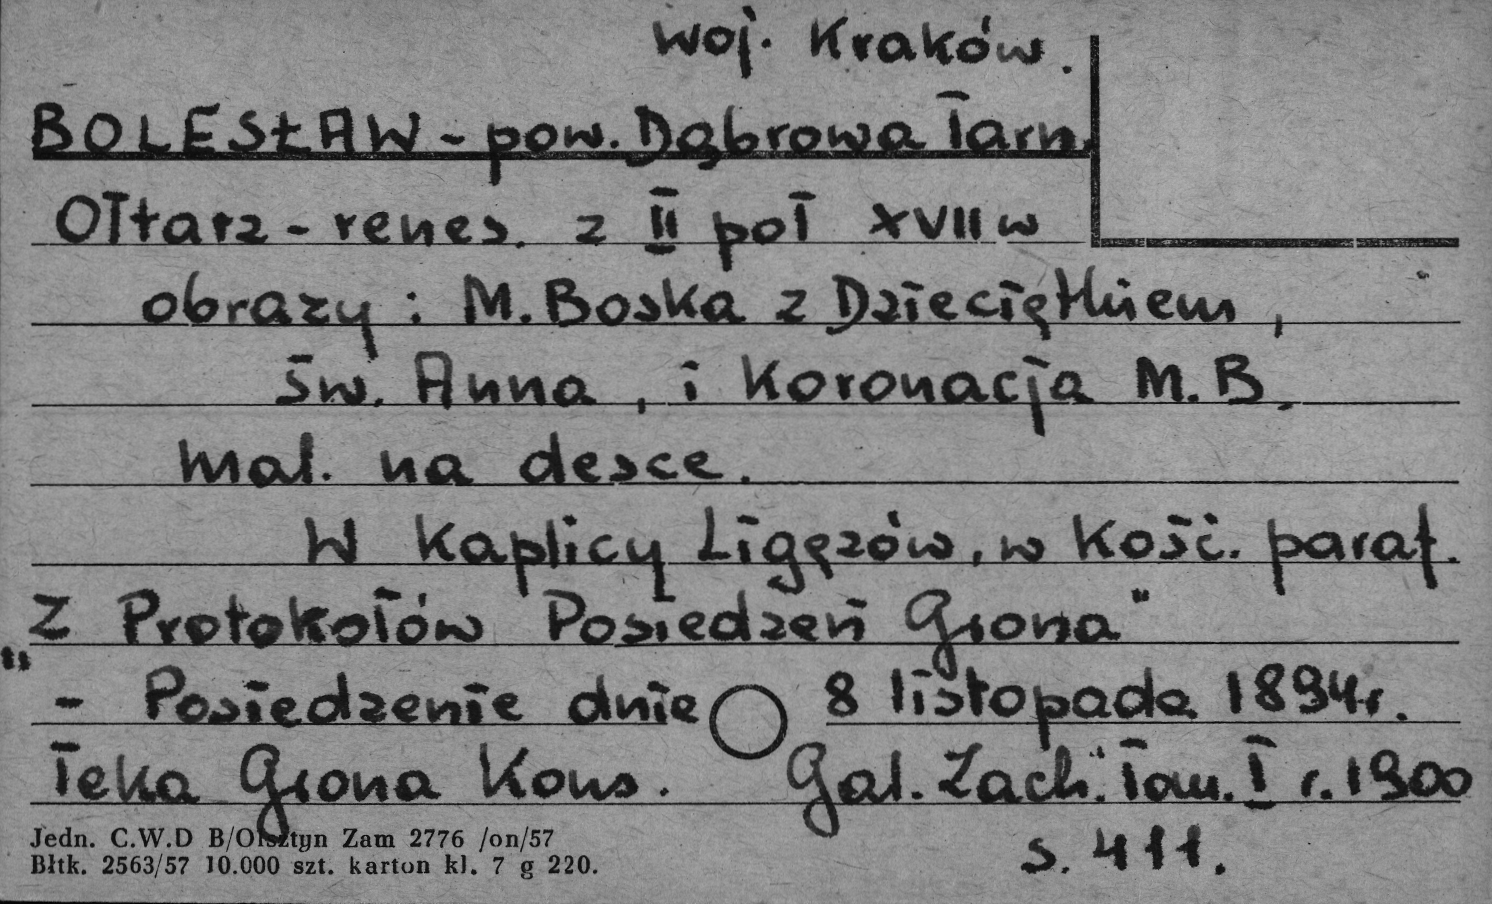 woj. Kraków.
BOLESŁAW - pow. Dąbrowa Tarn.
Ołtarz - renes. z II poł XVII w
obrazy : M. Boska z Dzieciątkiem,
św. Anna, i Koronacja M. B.
mal. na desce.
W kaplicy Ligęzów, w kość. paraf.
Z Protokołów Posiedzeń Grona"
" - Posiedzenie dnie 8 listopada 1894r.
Teka Grona Kons. Gal. Zach." Tom. I r. 1900
s. 411.
Jedn. C.W.D B/Olsztyn Zam 2776 /on/57
Błtk. 2563/57 10.000 szt. karton kl. 7 g 220.